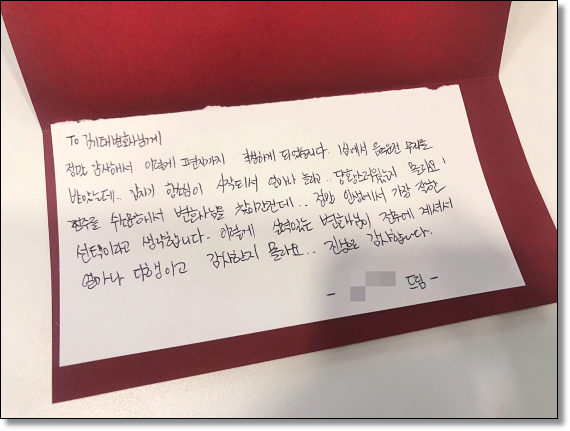 To 김기태변호사님께
정말 감사해서 이렇게 편지까지 작성하게 되었습니다. 1심에서 음주운전 무죄를
받았는데.. 갑자기 항소심이 시작되서 얼마나 놀라고 당황스러웠는지 몰라요!
전주를 수소문해서 변호사님을 찾아간건데.. 정말 인생에서 가장 잘한
선택이라고 생각합니다. 이렇게 실력있는 변호사님이 전주에 계셔서
얼마나 다행이고 감사한지 몰라요.. 진심으로 감사합니다.
- 드림 -